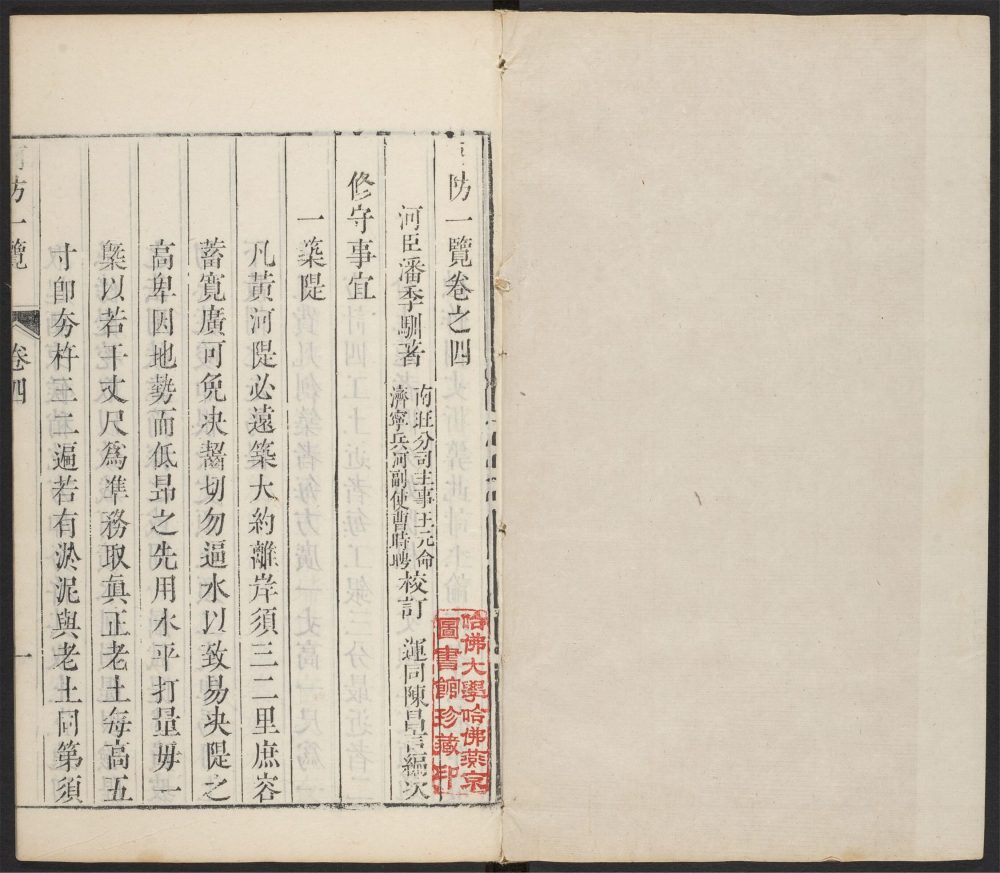 河防一覽卷之四
河臣潘季馴著
南旺分司主事王元命
濟寧兵河副使曹時聘
校訂
運同陳昌言編次
修守事宜
一築隄
凡黃河隄必遠築大約離岸須三二里庶容
蓄寬廣可免决齧切勿逼水以致易决隄之
高卑因地勢而低昻之先用水平打量毋一
槩以若干丈尺爲準務取眞正老土每高五
寸卽夯杵二三遍若有淤泥與老土同第須
河防一覽
卷四
一
哈佛大學哈佛燕京
圖書館珍藏印